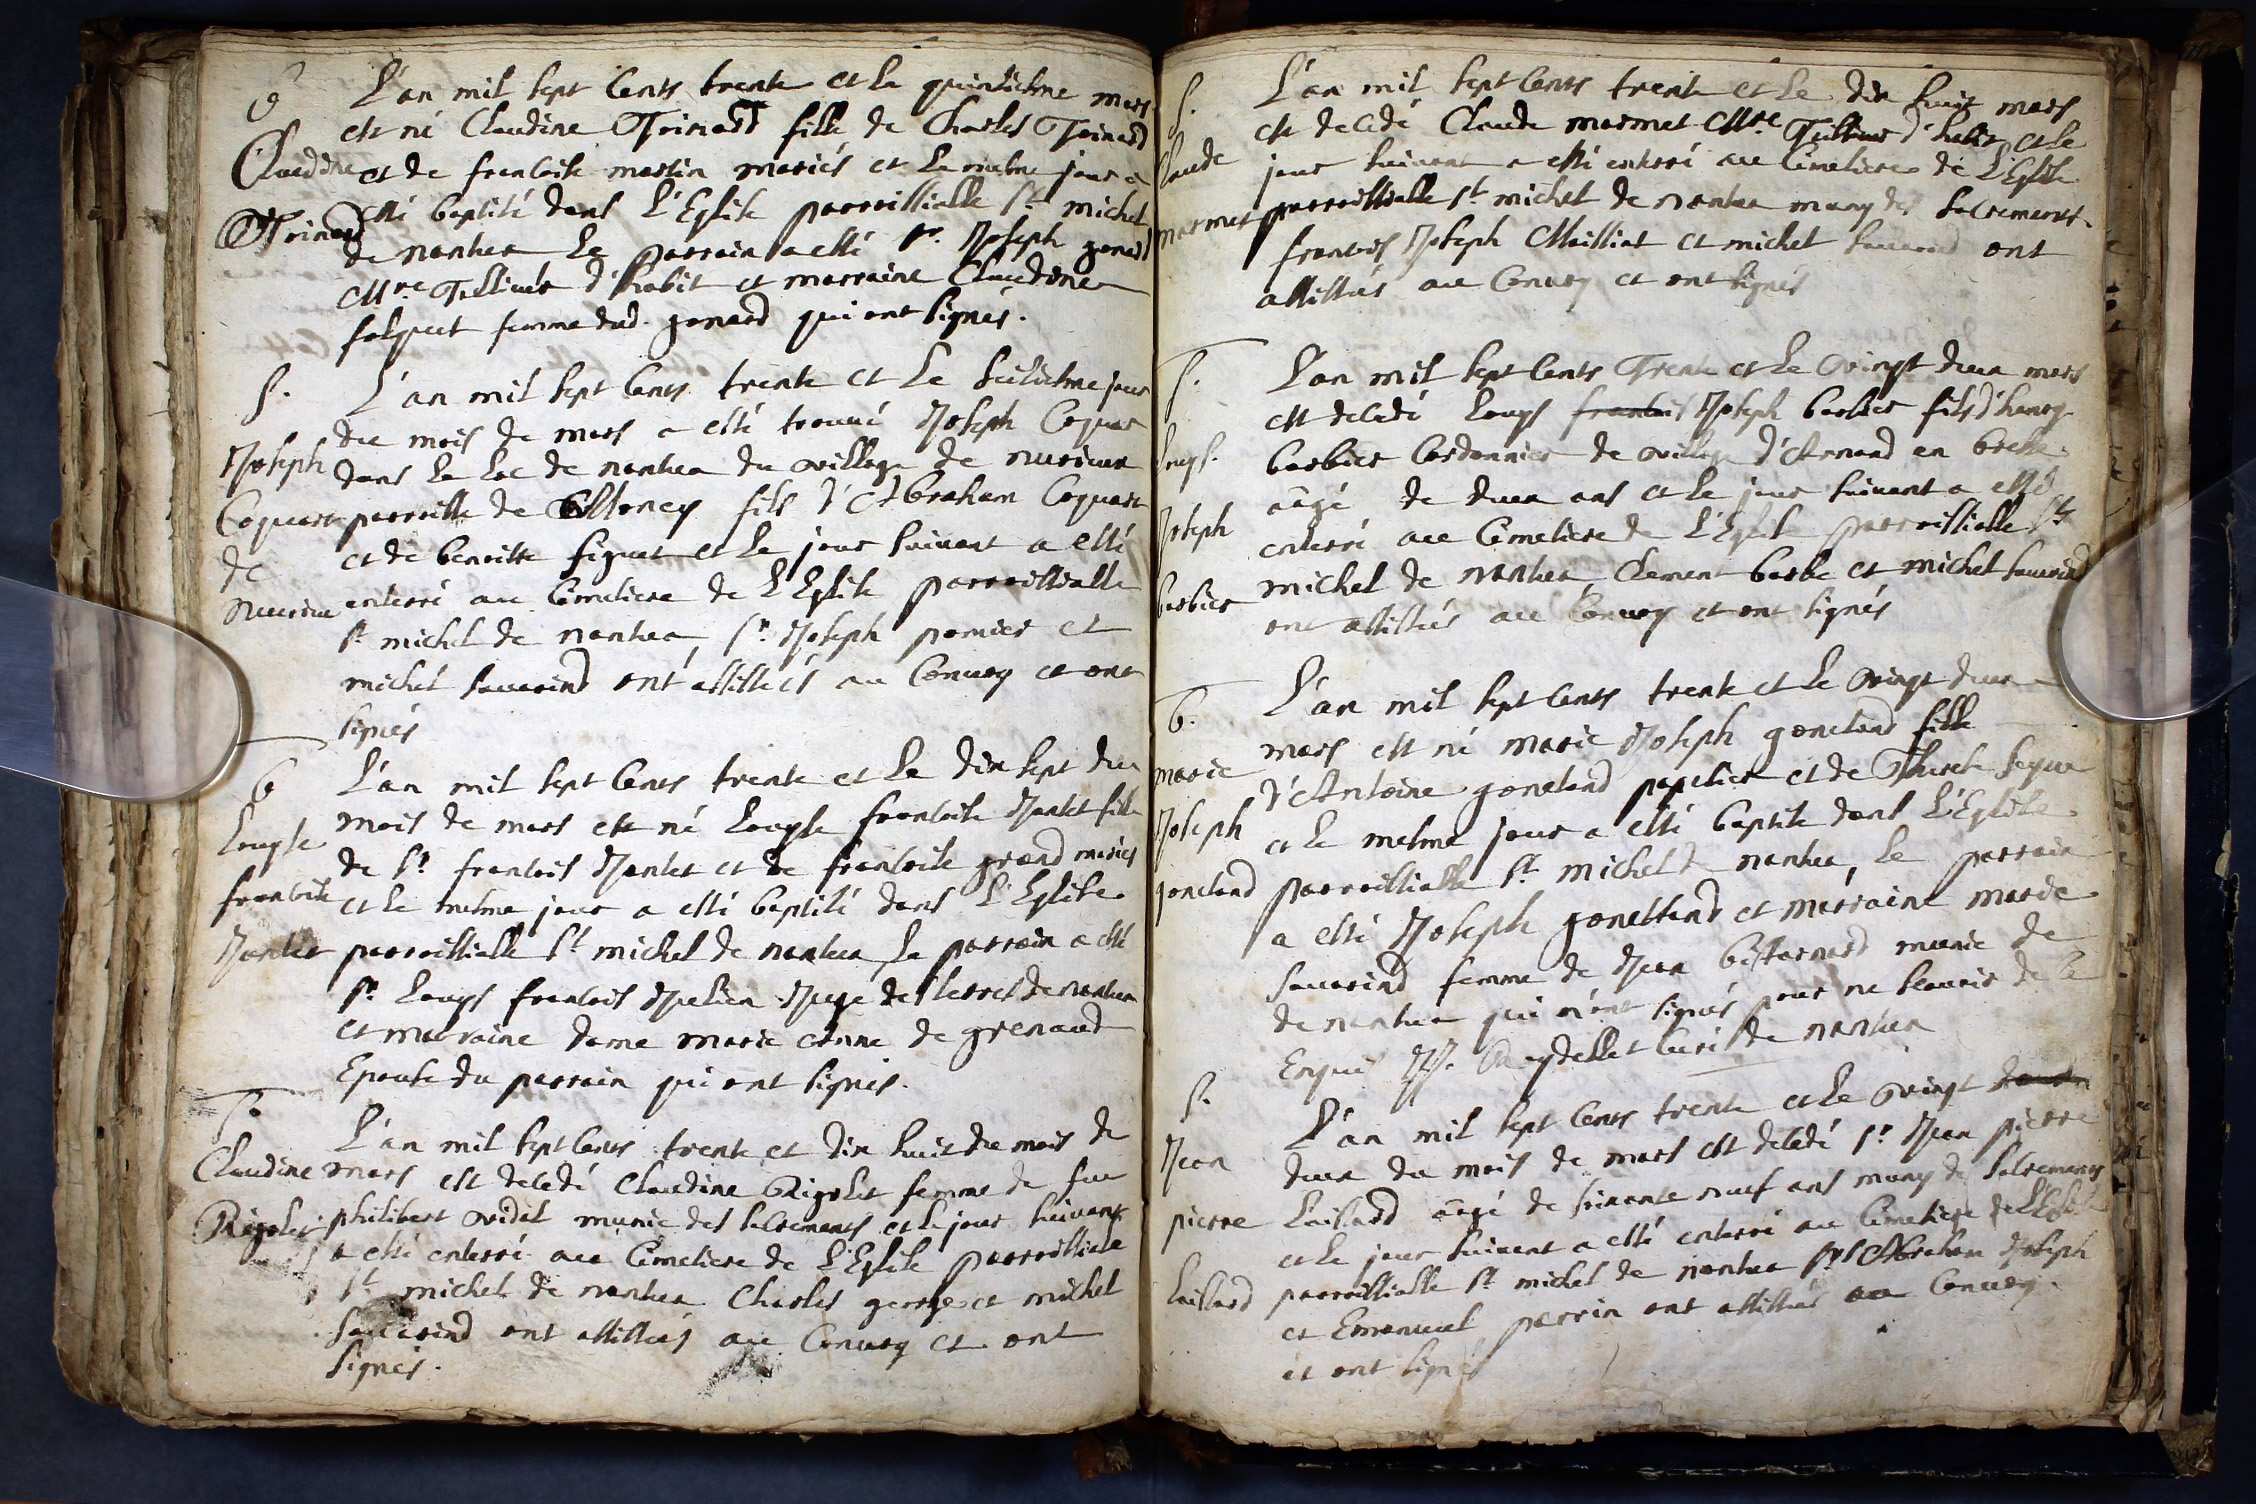 b
Claudine
Trinard
L'an mil sept cents trente et le quinsiesme mars
est né Claudine Trinard fille de Charles Trinard
et de francoise martin mariés et le mesme jour a
esté baptisé dans L'Eglise parroissialle st michel
de nantua le parrain a esté sr. Joseph gonard
Mre Tailleur d'habit et marraine Claudine
femme dud. gonard qui ont signés.
s.
Joseph
Coquart
de
L'an mil sept cents trente et le seisiesme jour
du mois de mars a esté trouvé Joseph Coquart
dans le lac de nantua du village de
parroisse de fils d'Abraham Coquart
et de benoitte figuet et le jour suivant a esté
enterré au Cimetiere de L'Eglise parroissialle
st michel de nantua, sr Joseph pomier et
michel sauarind ont assistés au Conuoy et ont
signés
b
Louyse
francoise
Jantet
L'an mil sept cents trente et le dix sept du
mois de mars est né Louyse francoise Jantet fille
de sr francois Jantet et de francoise grand mariés
et le mesme jour a esté baptisé dans L'Eglise
parroissialle st michel de nantua le parrain a esté
sr Louys francois Julien Juge des terres de nantua
et marraine dame marie Anne de grenaud
Epouse du parrain qui ont signés.
s.
Claudine
Rigolet
L'an mil sept cents trente et dix huit du mois de
mars est decedé Claudine Rigolet femme de feu
philibert vidal munie des sacrements et le jour suivant
a esté enterré au Cimetiere de L'Eglise parroissiale
st michel de nantua Charles george et michel
sauarind ont assistés au Conuoy et ont
signés.
s.
Claude
marmet
L'an mil sept cents trente et le dix huit mars
est decedé Claude marmet Mre Tailleur d'habit et le
jour suivant a esté enterré au Cimetiere de L'Eglise
parroissialle st michel de nantua muny des sacrements.
francois Joseph Mailliat et michel sauarind ont
assistés au Conuoy et ont signés
s.
Louys.
Joseph
barbier
L'an mil sept cents Trente et le vingt deux mars
est decedé Louys francois Joseph barbier fils d'henry
barbier Cordonnier de village d'Arnand en
aagé de deux ans et le jour suivant a esté
enterré au Cimetiere de L'Eglise parroissialle st
michel de nantua, Clement barbe et michel sauarind
ont assistés au Conuoy et ont signés
b.
marie
Joseph
goneland
L'an mil sept cents trente et le vingt deux
mars est né marie Joseph goneland fille
d'Antoine goneland papetier et de Therese
et le mesme jour a esté baptisé dans L'Eglise
parroissialle st michel de nantua, le parrain
a esté Joseph goneland et marraine marie
sauarind femme de Jean
de nantua qui n'ont signés pour ne scauoir de ce
Enquis Curé de nantua
s.
Jean
pierre
Laisard
L'an mil sept cents trente et le vingt
deux du mois de mars est decedé sr Jean pierre
Laisard aagé de soixante neuf ans muny des sacrements
et le jour suivant a esté enterré au Cimetiere de L'Eglise
parroissialle st michel de nantua srs Abraham Joseph
et Emanuel perrin ont assistés au Conuoy.
et ont signés